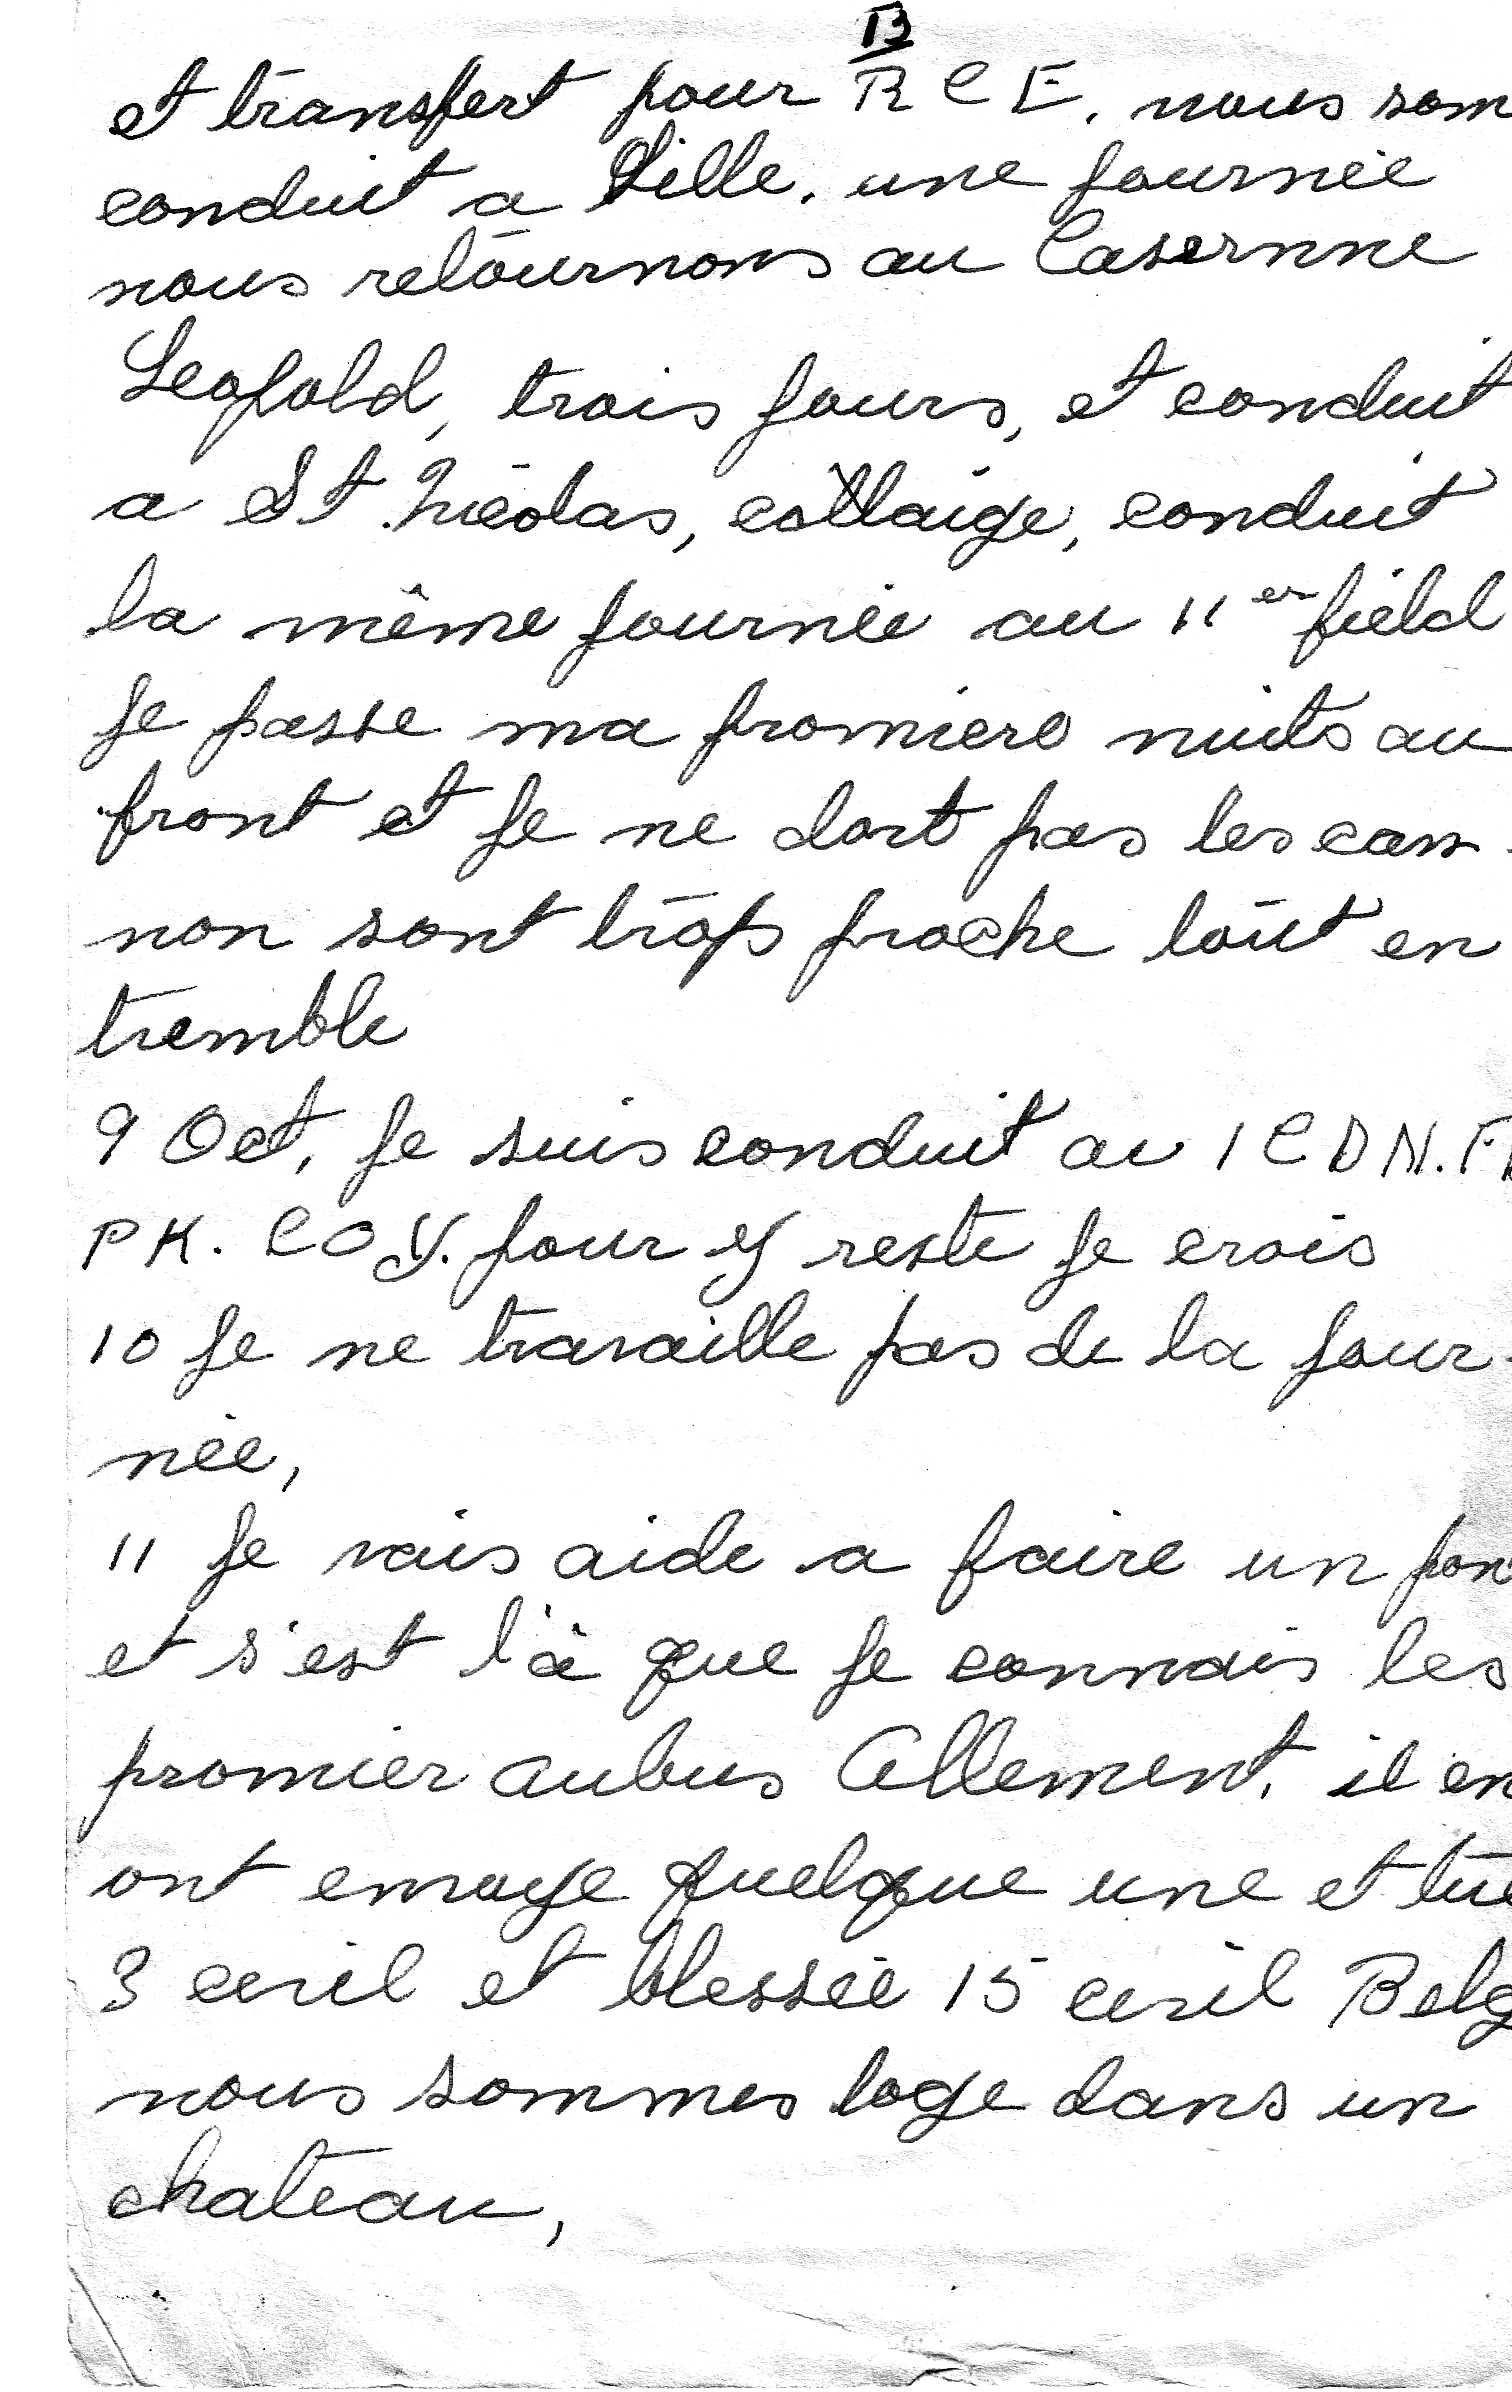 13
et transfert pour R C E. nous som
conduit a Lille. une journée
nous retournons au Casernne
Leopold, trois jours, et conduit
a St. Nicolas, collaige, conduit
la même journée au 11er field
je passe ma promiere nuits au
front et je ne dort pas les can-
non sont trops proche tout en
tremble
9 Oct, je suis conduit au 1 CDN. F
PK. COY. pour y reste je crois
10 je ne travaille pas de la jour-
née,
11 je vais aide a faire un pon
et s'est l'à que je connais les
promier aubus Allement. il en
ont envoye quelque une et tué
3 cevil et blessée 15 cevil Belg
nous sommes loge dans un
chateau,